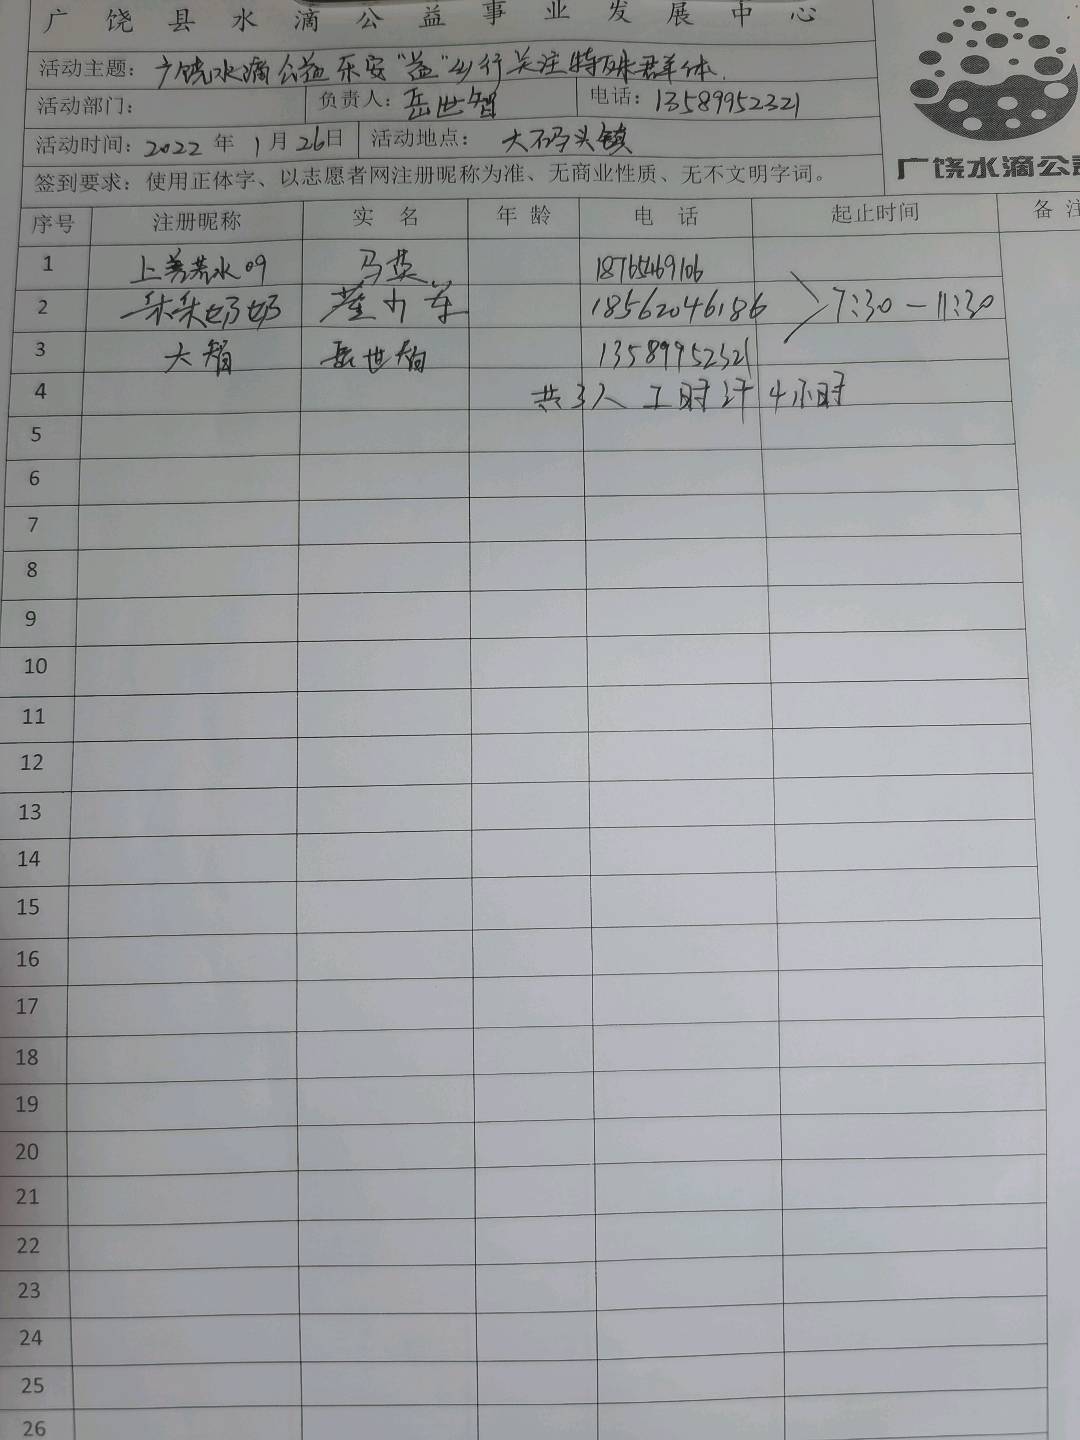 广饶县水滴公益事业发展中心
活动主题：广饶水滴公益乐安“益”乡行关注特殊群体.
活动部门： 负责人：岳世智 电话：13589952321
活动时间：2022年1月26日 活动地点：大码头镇
签到要求：使用正体字、以志愿者网注册昵称为准、无商业性质、无不文明字词。
广饶水滴公益
序号 注册昵称 实名 年龄 电话 起止时间 备注
1 上善若水09 马英 18765469106
2 朵朵奶奶 18562046186 7:30-11:30
3 大智 岳世智 13589952321
4 共3人 工时计4小时
5
6
7
8
9
10
11
12
13
14
15
16
17
18
19
20
21
22
23
24
25
26